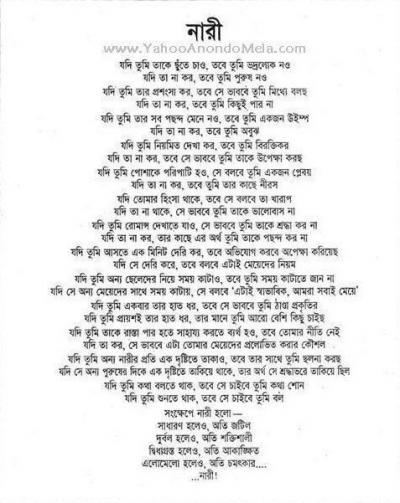 নারী
www.YahooAnondoMela.com
যদি তুমি তাকে ছুঁতে চাও, তবে তুমি ভদ্রলোক নও
যদি তা না কর, তবে তুমি পুরুষ নও
যদি তুমি তার প্রশংসা কর, তবে সে ভাববে তুমি মিথ্যে বলছ
যদি তা না কর, তবে তুমি কিছুই পার না
যদি তুমি তার সব পছন্দ মেনে নও, তবে তুমি একজন উইম্প
যদি তা না কর, তবে তুমি অবুঝ
যদি তুমি নিয়মিত দেখা কর, তবে তুমি বিরক্তিকর
যদি তা না কর, সে ভাববে তুমি তাকে উপেক্ষা করছ
যদি তুমি পোশাকে পরিপাটি হও, সে বলবে তুমি একজন প্লেবয়
যদি তা না কর, তবে তুমি তার কাছে নীরস
যদি তোমার হিংসা থাকে, তবে সে বলবে তা খারাপ
যদি তা না থাকে, সে ভাববে তুমি তাকে ভালোবাস না
যদি তুমি রোমান্স দেখাতে যাও, সে ভাববে তুমি তাকে শ্রদ্ধা কর না
যদি তা না কর, তার কাছে এর অর্থ তুমি তাকে পছন্দ কর না
যদি তুমি আসতে এক মিনিট দেরি কর, তবে অভিযোগ করবে অপেক্ষা করিয়েছ
যদি সে দেরি করে, তবে বলবে এটাই মেয়েদের নিয়ম
যদি তুমি অন্য ছেলেদের নিয়ে সময় কাটাও, তবে তুমি সময় কাটাতে জান না
যদি সে অন্য মেয়েদের সাথে সময় কাটায়, সে বলবে 'এটাই স্বাভাবিক, আমরা সবাই মেয়ে'
যদি তুমি একবার তার হাত ধর, তবে সে ভাববে তুমি ঠাণ্ডা প্রকৃতির
যদি তুমি প্রায়শই তার হাত ধর, তার মানে তুমি আরো বেশি কিছু চাইছ
যদি তুমি তাকে রাস্তা পার হতে সাহায্য করতে ব্যর্থ হও, তবে তোমার নীতি নেই
যদি তা কর, সে ভাববে এটা তোমার মেয়েদের প্রলোভিত করার কৌশল
যদি তুমি অন্য নারীর প্রতি এক দৃষ্টিতে তাকাও, তবে তার সাথে তুমি ছলনা করছ
যদি সে অন্য পুরুষের দিকে এক দৃষ্টিতে তাকিয়ে থাকে, তার অর্থ সে শ্রদ্ধাভরে তাকিয়ে ছিল
যদি তুমি কথা বলতে থাক, তবে সে চাইবে তুমি কথা শোন
যদি তুমি শুনতে থাক, তবে সে চাইবে তুমি বল
সংক্ষেপে নারী হলো—
সাধারণ হলেও, অতি জটিল
দুর্বল হলেও, অতি শক্তিশালী
দ্বিধাগ্রস্ত হলেও, অতি আকাঙ্ক্ষিত
এলোমেলো হলেও, অতি চমৎকার....
...নারী!